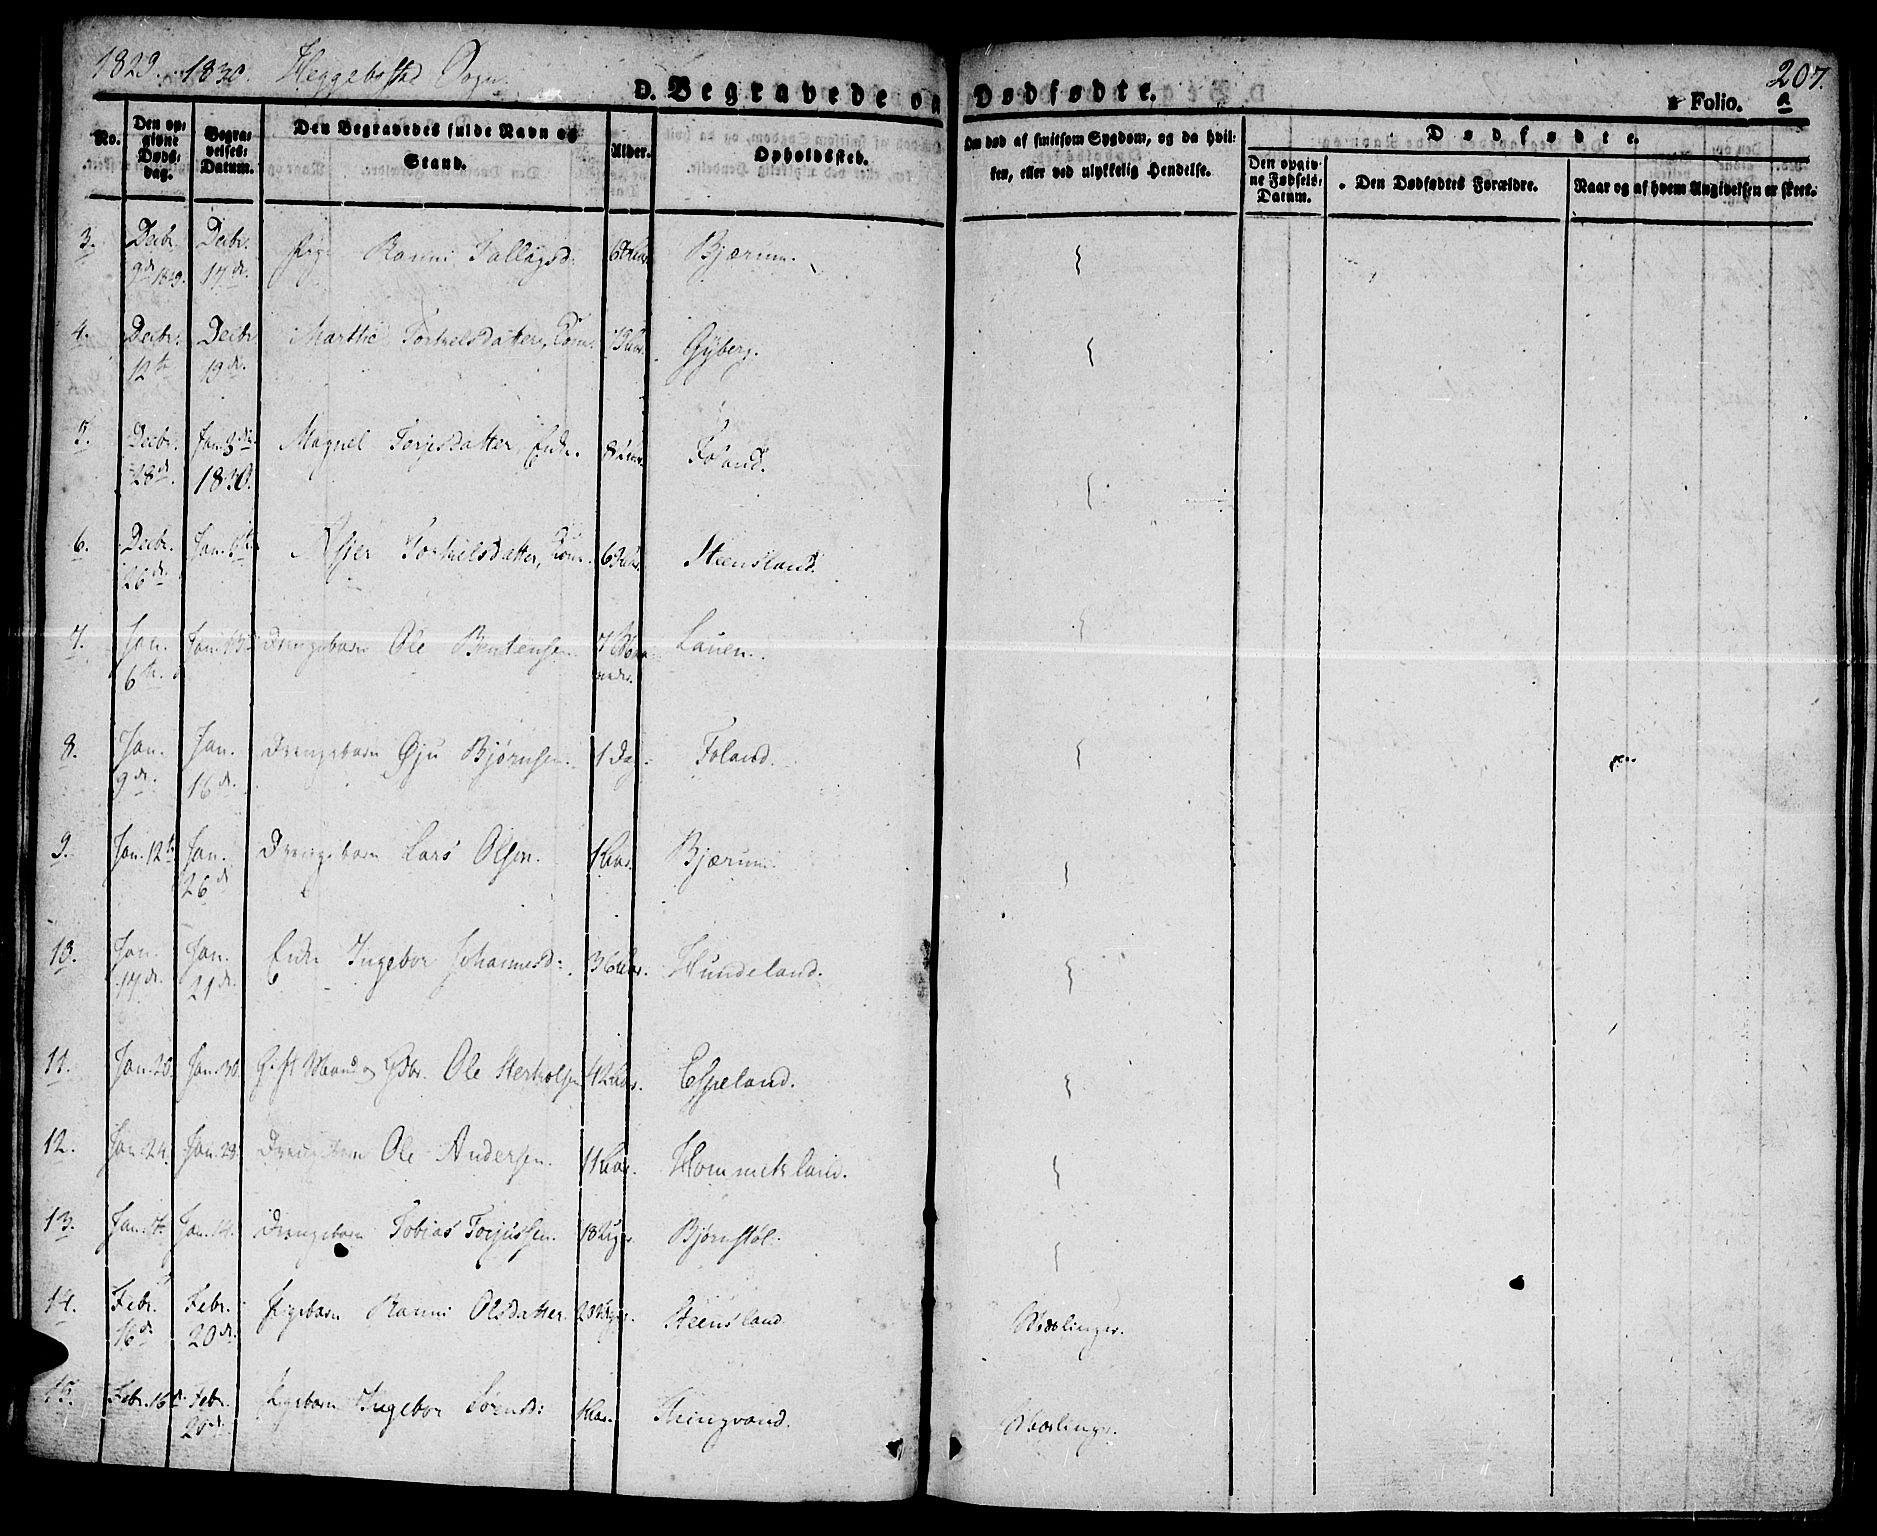 1829. 1830. Heggebstad Sogn.
D. Begravede og Dødfødte.
207.
Folio. a
No.
Den opgivne Døds-dag.
Begravelses-Datum.
Den Begravedes fulde Navn og Stand.
Alder.
Opholdssted.
Om død af smitsom Sygdom, og da hvilken, eller ved ulykkelig Hendelse.
Dødfødte.
Den opgivne Fødsels-Datum.
Den Dødfødtes Forældre.
Naar og af hvem Angivelsen er skeet.
3. Decbr. 9de 1829. Decbr. 17de. Ranni Tallagsd. Bjærum.
4. Decbr. 12te Decbr. 19de. Marthe Torkelsdatter, Gyberg.
5. Decbr. 28de. Jan. 3die 1830. Magnel Torjesdatter, Enke. Foland.
6. Decbr. 26de. Jan. Torkelsdatter, Steensland.
7. Jan. 6te. Jan. 13. Drengebarn Ole Bentensen. 7 Maaneder. Lauen.
8. Jan. 9de. Jan. 16de. Drengebarn Øju Bjørnsen. 1 Dag. Foland.
9. Jan. 12te Jan. 26de Drengebarn Lars Olsen. 1 Aar. Bjærum.
10. Jan. 17de. Jan. 21de. Enke Ingebor Johannesd: 36 Aar. Hundeland.
11. Jan. 20. Jan. 30. Gift Mand og Gdbr. Ole 42 Aar. Espeland.
12. Jan. 24. Jan. 28. Drengebarn Ole Andersen. 11 Aar. Hommeksland.
13. Jan. Jan. 14. Drengebarn Tobias Torjussen. 18 Uger. Bjørnstøl.
14. Febr. 16de Febr. 20de. Pigebarn Ranni Olsdatter Steensland
15. Febr. 16de Febr. 20de Pigebarn Ingebor Sørensd: 1 Aar.